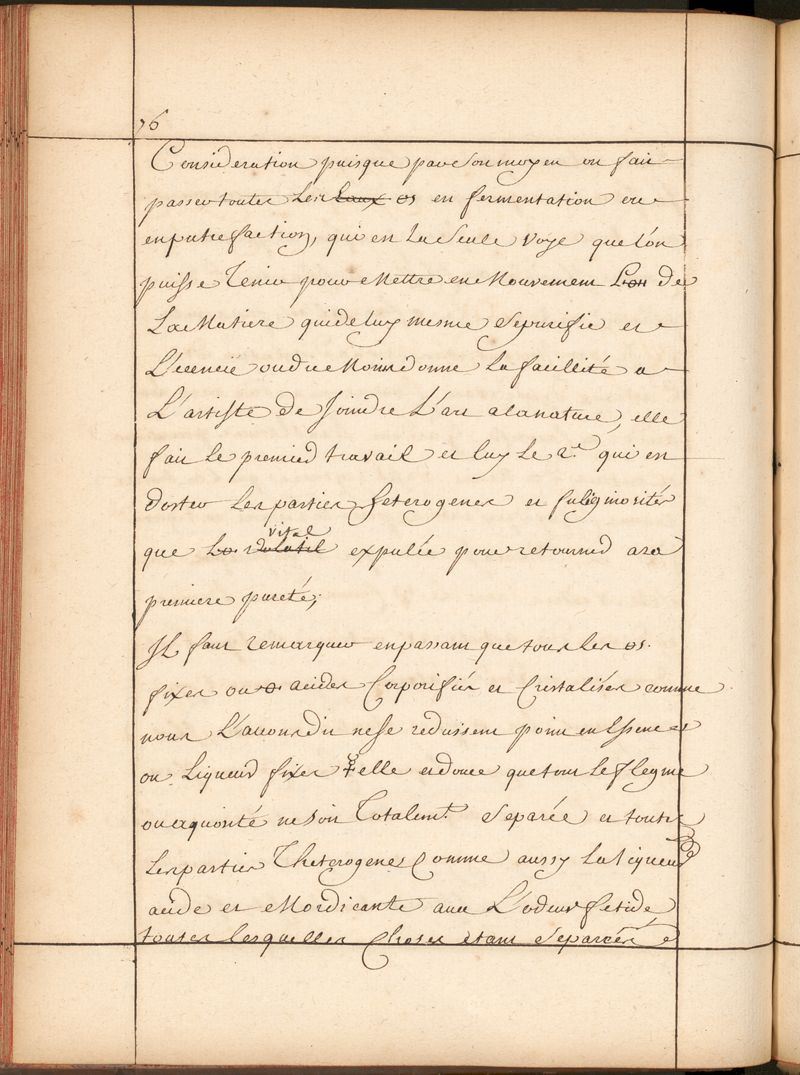 76
Consideration puisque par son moyen on fait
passer toutes les eaux en fermentation ou
en putrefaction, qui est la seule voye que l'on
puisse tenir pour mettre en mouvement de
La Matiere qui de luy mesme se purifie et
ou du Moins donne la facillité a
L'artiste de Joindre L'art a la nature, elle
fait le premier travail et luy le 2.e qui est
d'oster les parties heterogenes et fuligmosités
que Le volatil vital expulée pour retourner a sa
premiere pureté;
Il faut remarquer en passant que tous les
fixes ou acides Corporifiés et Cristalisés comme
nous L'avons dit ne se reduisent point en Essence
ou Liqueur fixes elle et douce que tout le flegme
ou aquosité ne soit Totalem.t separée et toutes
Les parties Theterogenes Comme aussy la liqueur
acide et Mordicante avec L'odeur fetide,
toutes lesquelles Choses etant separées